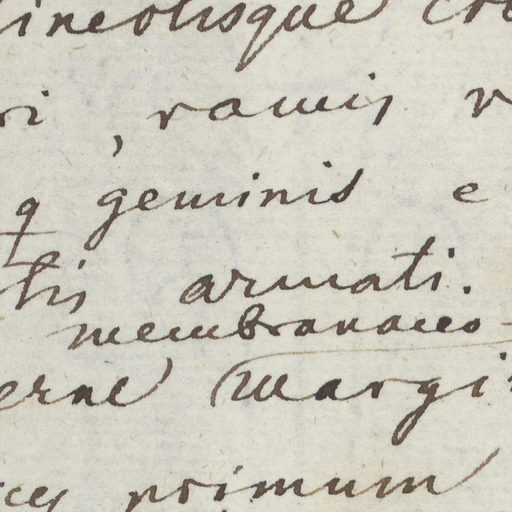 lineolisque
ri, ramis
q geminis e
tis armati.
membranaceo-
erne margi
primum